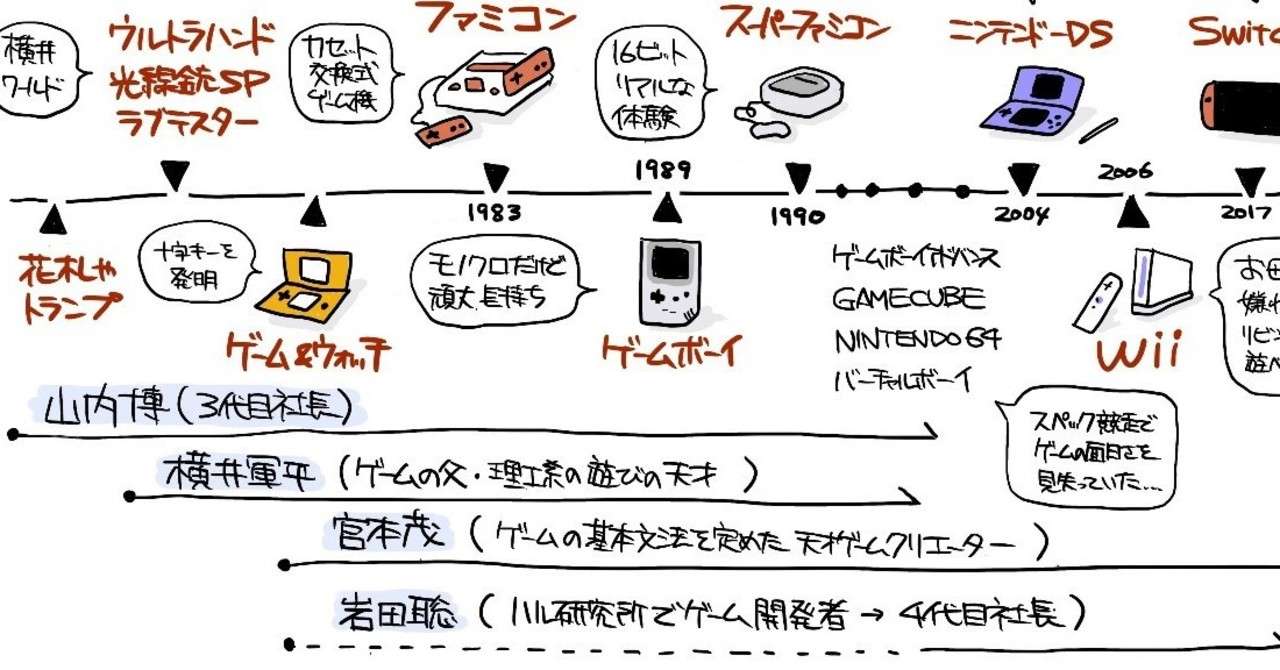 横井
ワールド
ウルトラハンド
光線銃SP
ラブテスター
カセット
交換式
ゲーム機
ファミコン
16ビット
リアルな
体験
スーパーファミコン
ニンテンドーDS
Switc
1989
2006
1983
1990
2004
2017
花札しゃ
トランプ
十字キーを
発明
ゲーム&ウォッチ
モノクロだけど
頑丈、長持ち
ゲームボーイ
ゲームボーイアドバンス
GAMECUBE
NINTENDO64
バーチャルボーイ
Wii
お母
嫌わ
リビン
遊べ
スペック競走で
ゲームの面白さを
見失っていた...
山内博(3代目社長)
横井軍平(ゲームの父・理工系の遊びの天才 )
宮本茂(ゲームの基本文法を定めた 天才ゲームクリエーター )
岩田聡(ハル研究所でゲーム開発者→4代目社長)